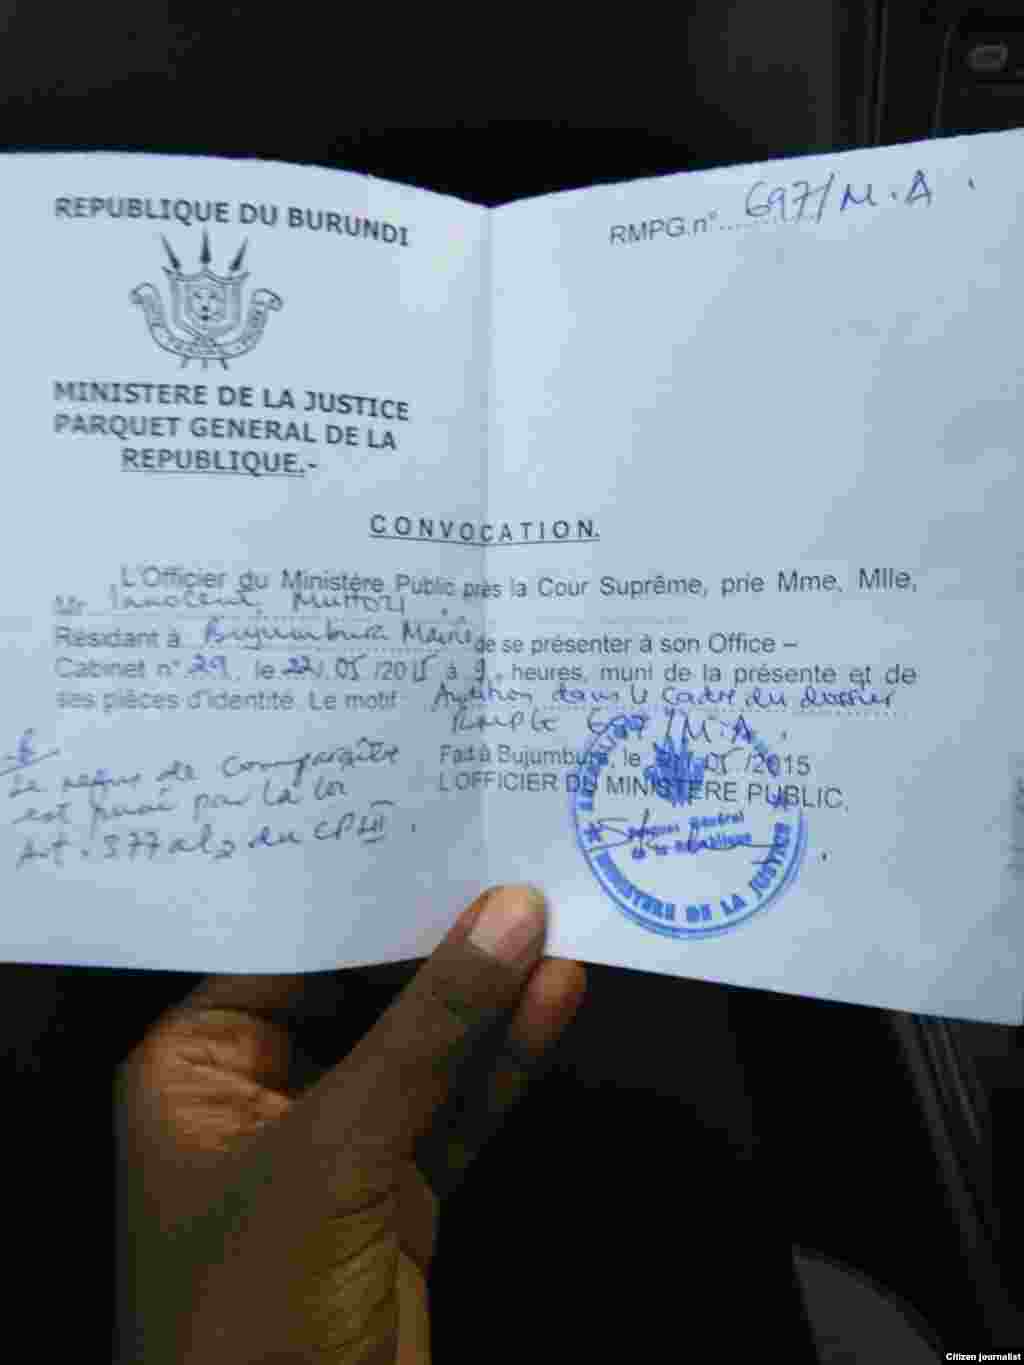 REPUBLIQUE DU BURUNDI
RMPG.n°. 697/M.A
MINISTERE DE LA JUSTICE
PARQUET GENERAL DE LA
REPUBLIQUE.-
CONVOCATION.
L'Officier du Ministère Public près la Cour Suprême, prie Mme, Mlle,
Mr Innocent
Résidant à Bujumbura Mairie de se présenter à son Office –
Cabinet n° 29, le 22/05/2015 à 9 heures, muni de la présente et de
ses pièces d'identité. Le motif Audition dans le cadre du dossier
RMPG 697/M.A.
Fait à Bujumbura, le /05/2015
L'OFFICIER DU MINISTERE PUBLIC.
Le refus de comparaître
est puni par la loi
Art. 377 al 2 du CPLII.
Parquet général
de la République
MINISTERE DE LA JUSTICE
Citizen journalist